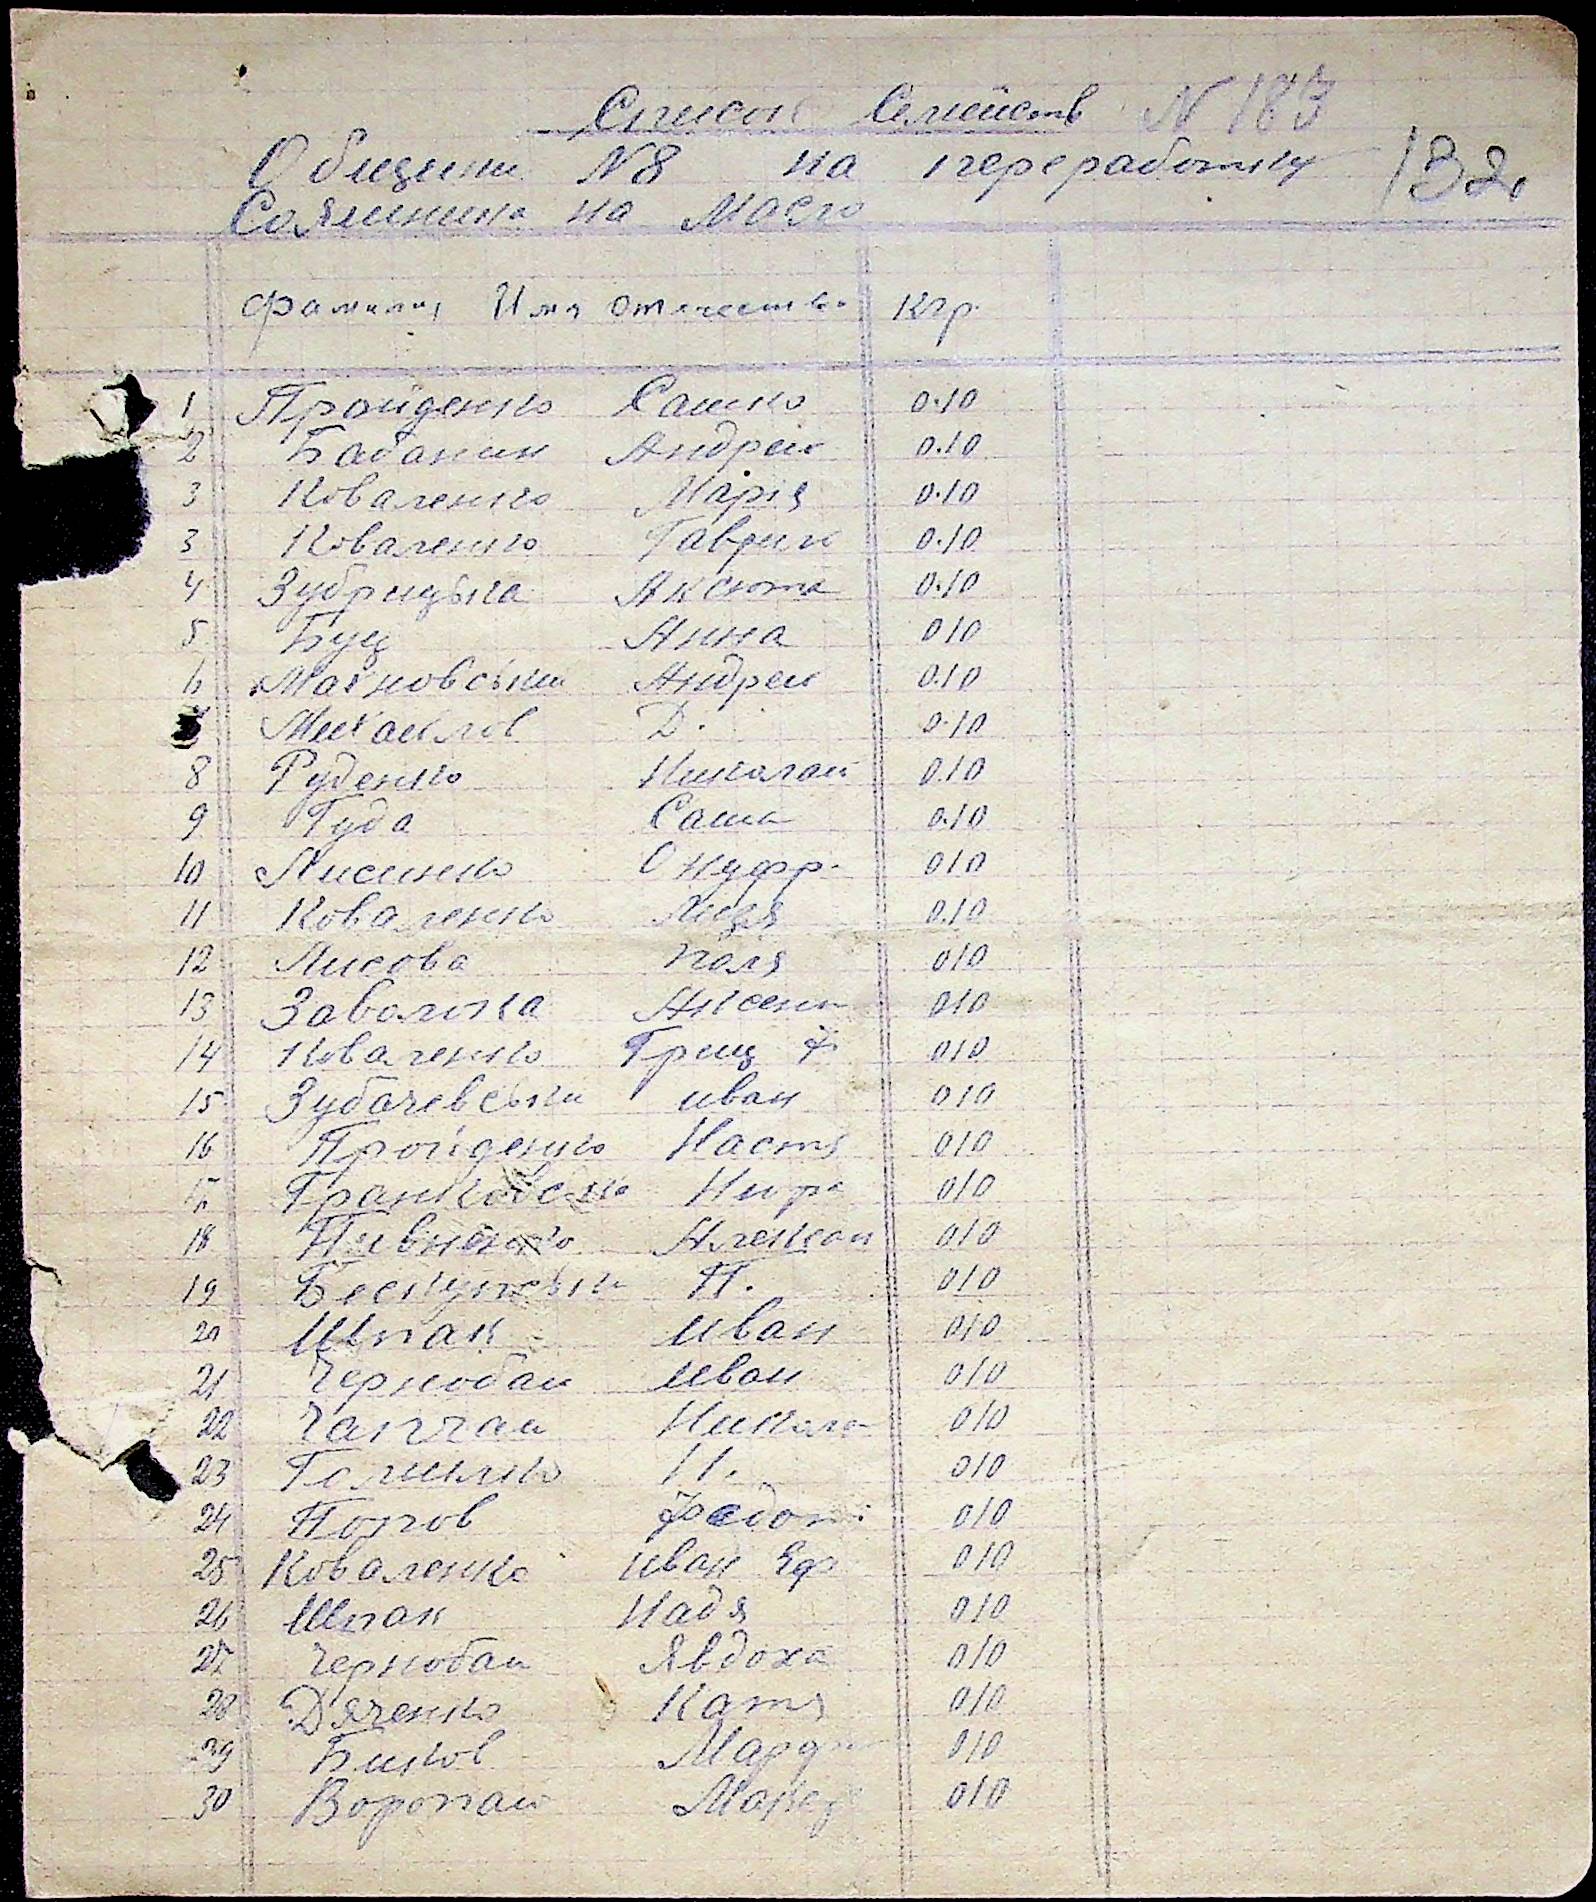 Список Семейств N 183
Общини N8 на переработку 132
Соляшника на Масло
Фамилия Имя отчество Кгр.
1 Пройденко Сашко 0.10
2 Бабанин Андрей 0.10
3 Коваленко Марія 0.10
3 Коваленко Гаврил 0.10
4 Зубрицька Аксюта 0.10
5 Буц Анна 010
6 Махновськи Андрей 0.10
Михайлов Д. 0.10
8 Руденко Николай 0.10
9 Гуда Саша 0.10
10 Лисенко Онуфр. 010
11 Коваленко Лиза 0.10
12 Лисова Поля 010
13 Заболотна 010
14 Коваленко Гриц Ф 010
15 Зубачевськи иван 010
16 Пройденко Настя 010
17 010
18 Пивненко Алексан 010
19 П. 010
20 Шпак Иван 010
21 Чернобаи Иван 010
22 Чапчаи Никола 010
23 Н. 010
24 Попов Федот 010
25 Коваленко иван Еф 010
26 Шпак Надя 010
27 Чернобаи Явдоха 010
28 Дяченко Катя 010
29 Биков 010
30 Воропаи 010